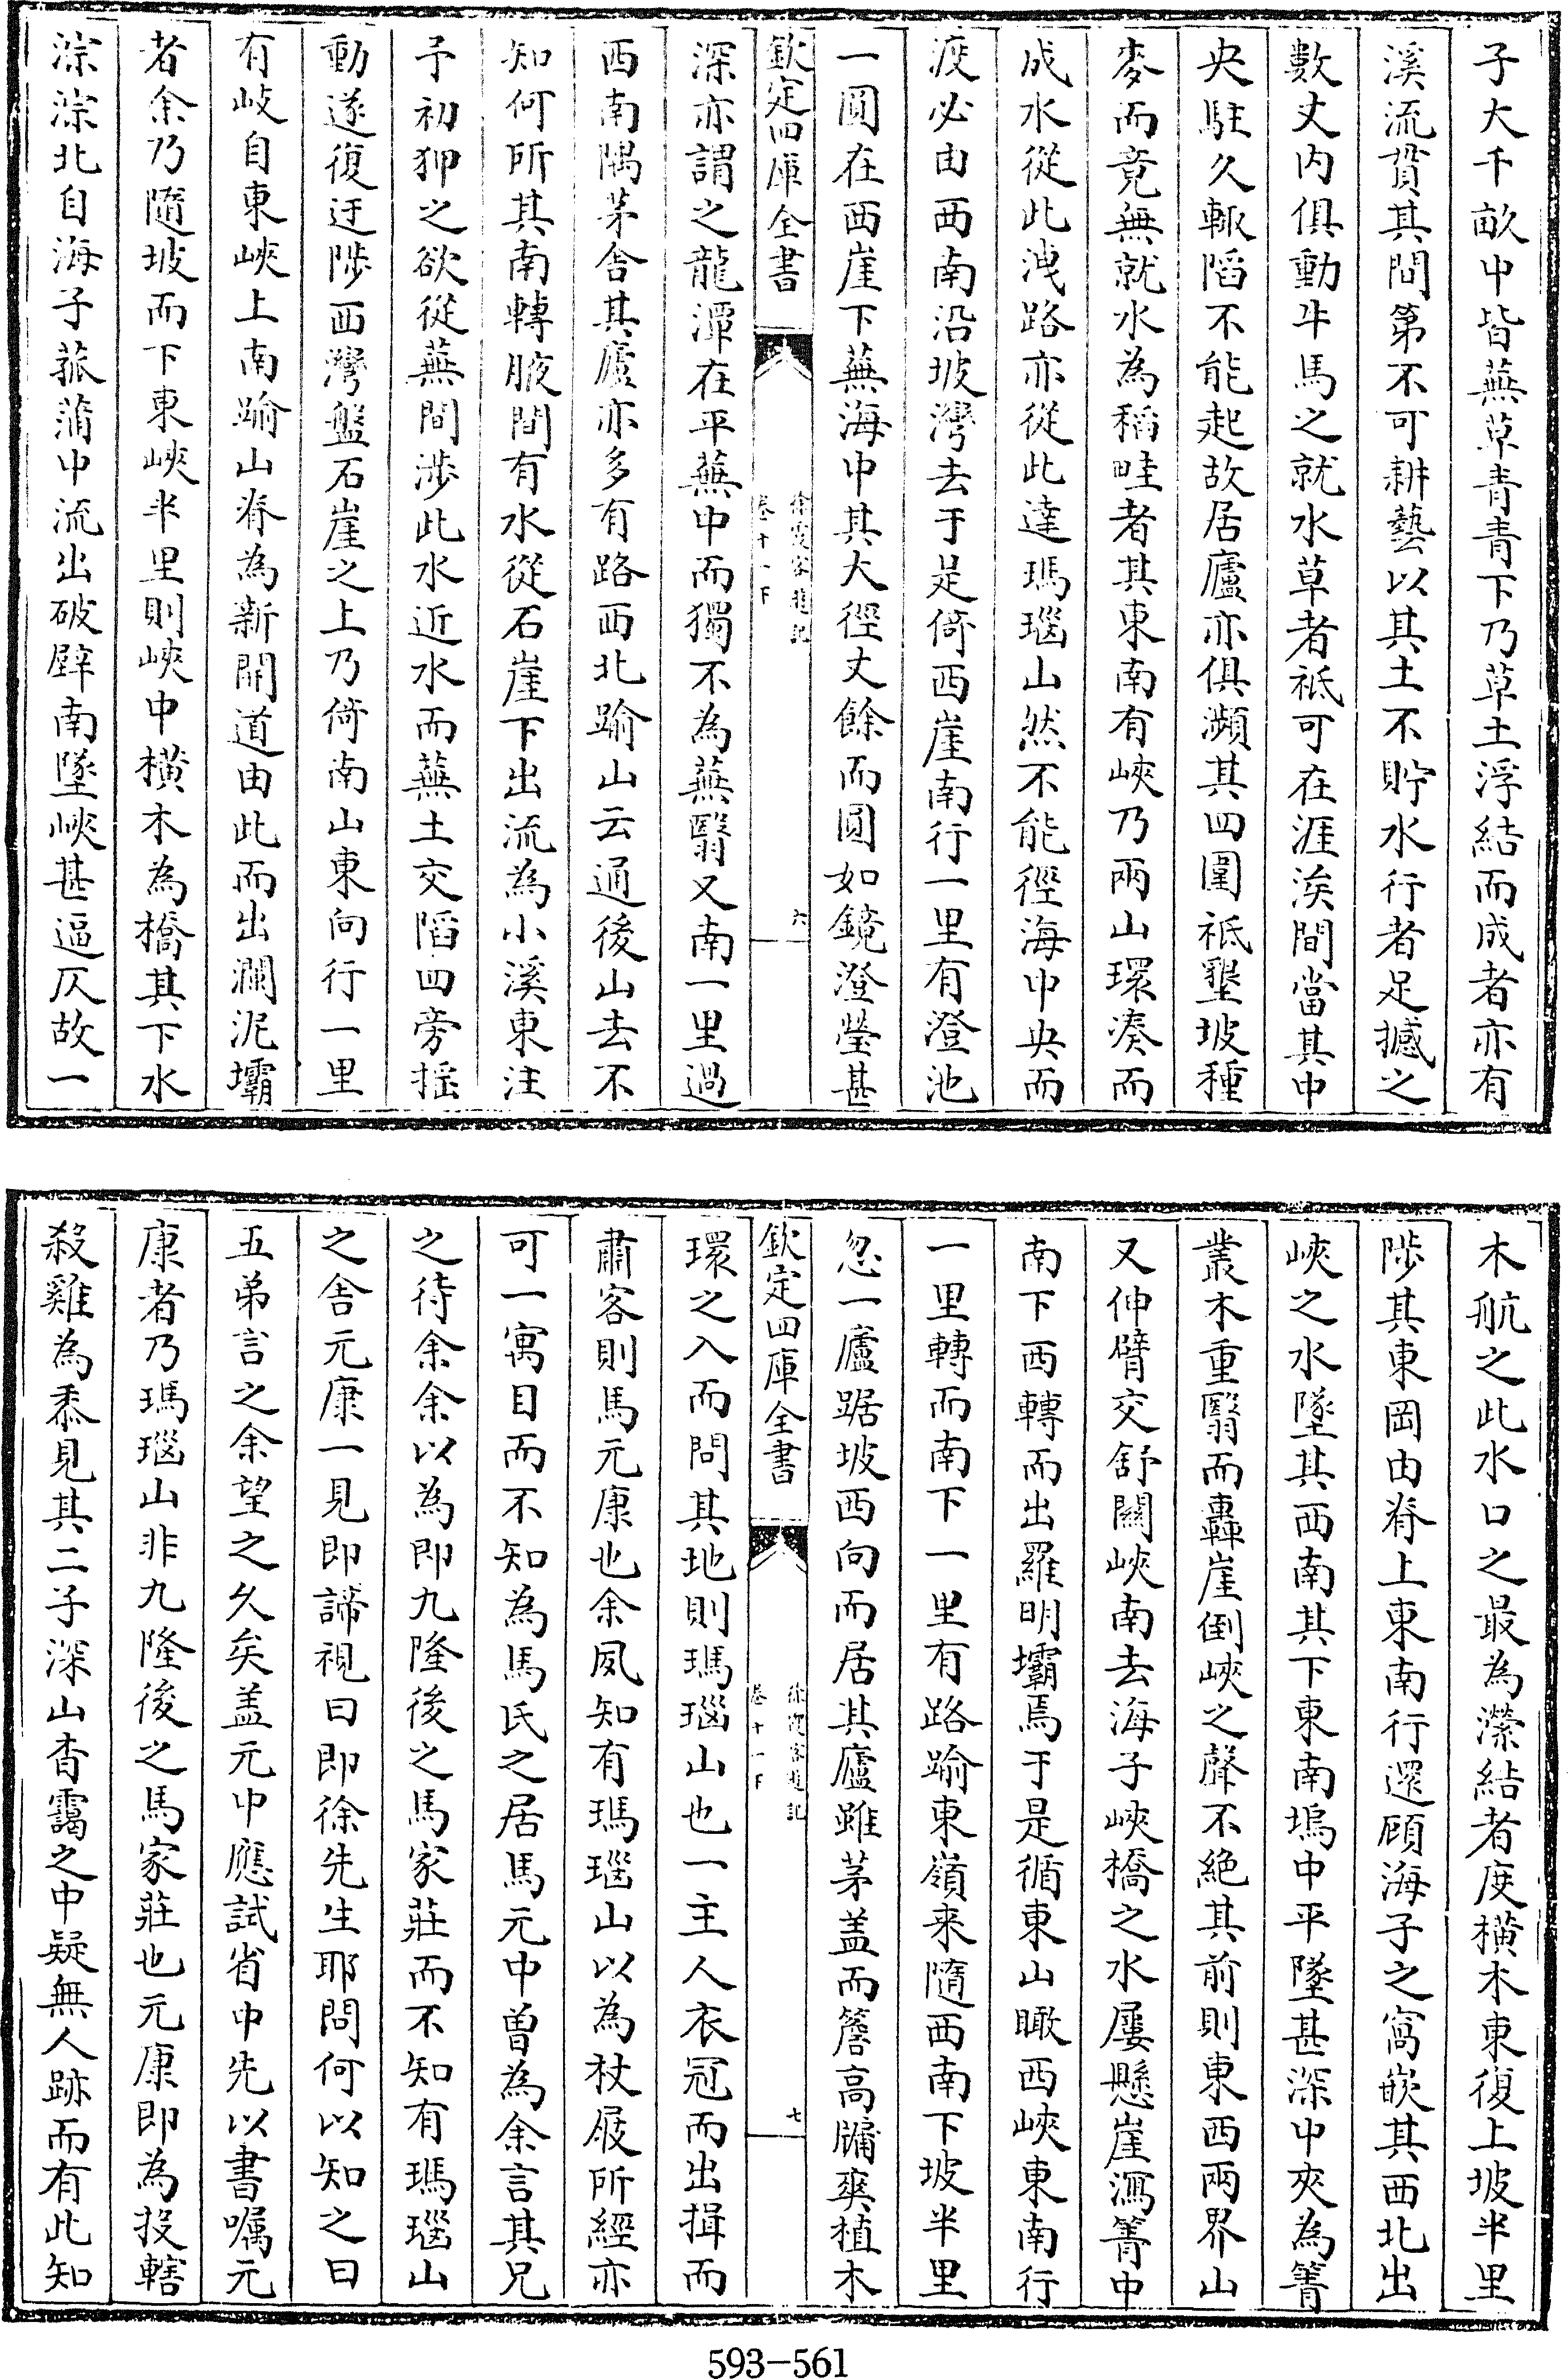 子大千畝中皆蕪草青青下乃草土浮結而成者亦有
溪流貫其間第不可耕藝以其土不貯水行者足撼之
數丈内俱動牛馬之就水草者祗可在涯涘間當其中
央駐久輙陷不能起故居廬亦俱瀕其四圍祗墾坡種
麥而竟無就水為稻畦者其東南有峽乃兩山環湊而
成水從此洩路亦從此達瑪瑙山然不能徑海中央而
渡必由西南沿坡灣去于是倚西崖南行一里有澄池
一圓在西崖下蕪海中其大徑丈餘而圓如鏡澄瑩甚
欽定四庫全書
徐霞客遊記
卷十一下
六
深亦謂之龍潭在平蕪中而獨不為蕪翳又南一里過
西南隅茅舍其廬亦多有路西北踰山云通後山去不
知何所其南轉腋間有水從石崖下出流為小溪東注
予初狎之欲從蕪間涉此水近水而蕪土交陷四旁揺
動遂復迂陟西灣盤石崖之上乃倚南山東向行一里
有岐自東峽上南踰山脊為新開道由此而出瀾泥壩
者余乃隨坡而下東峽半里則峽中横木為橋其下水
淙淙北自海子菰蒲中流出破壁南墜峽甚逼仄故一
木航之此水口之最為瀠結者度横木東復上坡半里
陟其東岡由脊上東南行還顧海子之窩嵌其西北出
峽之水墜其西南其下東南塢中平墜甚深中夾為箐
叢木重翳而轟崖倒峽之聲不絶其前則東西兩界山
又伸臂交舒闢峽南去海子峽橋之水屢懸崖瀉箐中
南下西轉而出羅明壩焉于是循東山瞰西峽東南行
一里轉而南下一里有路踰東嶺来隨西南下坡半里
忽一廬踞坡西向而居其廬雖茅盖而簷高牖爽植木
欽定四庫全書
徐霞客遊記
卷十一下
七
環之入而問其地則瑪瑙山也一主人衣冠而出揖而
肅客則馬元康也余夙知有瑪瑙山以為杖屐所經亦
可一寓目而不知為馬氏之居馬元中曽為余言其兄
之待余余以為即九隆後之馬家莊而不知有瑪瑙山
之舍元康一見即諦視曰即徐先生耶問何以知之曰
五弟言之余望之久矣盖元中應試省中先以書囑元
康者乃瑪瑙山非九隆後之馬家莊也元康即為投轄
殺雞為黍見其二子深山杳靄之中疑無人跡而有此知
593-561